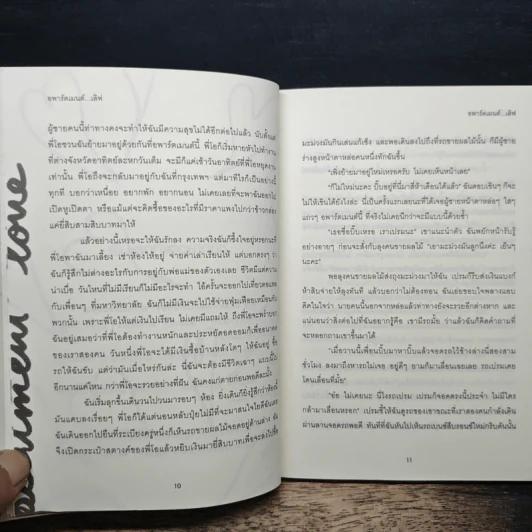 อพาร์ตเมนต์...เลิฟ
ผู้ชายคนนี้ท่าทางคงจะทำให้ฉันมีความสุขไม่ได้อีกต่อไปแล้ว นับตั้งแต่
พี่โอชวนฉันย้ายมาอยู่ด้วยกันที่อพาร์ตเมนต์นี้ พี่โอก็เริ่มหายหัวไปทำ
ที่ต่างจังหวัดอาทิตย์ละหกวันเต็ม จะมีก็แค่เช้าวันอาทิตย์ที่พี่โอหยุดงาน
เท่านั้น พี่โอถึงจะกลับมาอยู่กับฉันที่กรุงเทพฯ แต่มาทีไรก็เป็นอย่างนี้
ทุกที บอกว่าเหนื่อย อยากพัก อยากนอน ไม่เคยเลยที่จะพาฉันออกไป
เปิดหูเปิดตา หรือแม้แต่จะคิดซื้อของอะไรที่มีราคาแพงไปกว่าข้าวกล่อง
แค่ยี่สิบสามสิบบาทมาให้
แล้วอย่างนี้เหรอจะให้ฉันรักลง ความจริงฉันก็ซึ้งใจอยู่หรอกนะที่
พี่โอพาฉันมาเลี้ยง เช่าห้องให้อยู่ จ่ายค่าเล่าเรียนให้ แต่บอกตรงๆ ว่า
ฉันก็รู้สึกไม่ต่างอะไรกับการอยู่กับพ่อแม่ของตัวเองเลย ชีวิตมีแต่ความ
น่าเบื่อ วันไหนที่ไม่มีเรียนก็ไม่มีอะไรจะทำ ไอ้ครั้นจะออกไปเที่ยวตลอด
กับเพื่อนๆ ที่มหาวิทยาลัย ฉันก็ไม่มีเงินจะไปใช้จ่ายฟุ่มเฟือยเหมือนกับ
พวกนั้น เพราะพี่โอให้แค่เงินไปเรียน ไม่เคยมีแถมให้ ถึงพี่โอจะพร่ำบอก
ฉันอยู่เสมอว่าที่พี่โอต้องทำงานหนักและประหยัดอดออมก็เพื่ออนาคต
ของเราสองคน วันหนึ่งพี่โอจะได้มีเงินซื้อบ้านหลังโตๆ ให้ฉันอยู่ ซื้อ
รถให้ฉันขับ แต่ว่ามันเมื่อไหร่กันล่ะ นี่ฉันจะต้องมีชีวิตเฉาๆ แบบนี้ไป
อีกนานแค่ไหน กว่าพี่โอจะรวยอย่างที่ฝัน ฉันคงแก่ตายก่อนพอดีละมั้ง
ฉันเริ่มลุกขึ้นเดินวนไปวนมารอบๆ ห้อง ยิ่งเดินก็ยิ่งรู้สึกว่าห้องนี้
มันแคบลงเรื่อยๆ พี่โอก็ได้แต่นอนหลับปุ๋ยไม่มีที่จะมาสนใจไยดีฉันเลย
ฉันเดินออกไปยืนที่ระเบียงครู่หนึ่งก็เห็นรถขายผลไม้จอดอยู่ด้านล่าง ฉัน
จึงเปิดกระเป๋าสตางค์ของพี่โอแล้วหยิบเงินมายี่สิบบาทเพื่อจะลงไปซื้อ
10
อพาร์ตเมนต์...เลิฟ
มะม่วงมันกินเล่นแก้เซ็ง และพอเดินลงไปถึงที่รถขายผลไม้นั้น ก็มีผู้ชาย
ร่างสูงหน้าตาหล่อคนหนึ่งทักฉันขึ้น
"เพิ่งย้ายมาอยู่ใหม่เหรอครับ ไม่เคยเห็นหน้าเลย"
"ก็ไม่ใหม่นะคะ บิ๊บอยู่ที่นี่มาสี่ห้าเดือนได้แล้ว" ฉันตอบเขินๆ ก็จะ
ไม่ให้เขินได้ยังไงล่ะ นี่เป็นครั้งแรกเลยนะที่ได้เจอผู้ชายหน้าตาหล่อๆ ใสๆ
แถวๆ อพาร์ตเมนต์นี้ ที่จริงไม่เคยนึกว่าจะมีแบบนี้ด้วยซ้ำ
"เธอชื่อบิ๊บเหรอ เราเปรมนะ" เขาแนะนำตัว ฉันพยักหน้ารับรู้
อย่างอายๆ ก่อนจะสั่งกับลุงคนขายผลไม้ "เอามะม่วงมันลูกนึงค่ะ เย็นๆ
นะคะ"
พอลุงคนขายผลไม้ส่งถุงมะม่วงมาให้ฉัน เปรมก็รีบส่งเงินแบงก์
ห้าสิบจ่ายให้ลุงทันที แล้วบอกว่าไม่ต้องทอน ฉันเลยชอบใจพลางแอบ
คิดในใจว่า นายคนนี้นอกจากหล่อแล้วท่าทางยังจะรวยอีกต่างหาก และ
แน่นอนว่าสิ่งต่อไปที่ฉันอยากรู้คือ เขามีรถมั้ย ว่าแล้วฉันก็คิดคำถามที่
จะหลอกถามเขาขึ้นมาได้
"เมื่อวานนี้เพื่อนบิ๊บมาหาบิ๊บแล้วจอดรถไว้ข้างล่างนี่สองสาม
ชั่วโมง ลงมาถึงหารถไม่เจอ อยู่ดีๆ ยามก็มาเลื่อนเฉยเลย รถเปรมเคย
โดนเลื่อนที่มั้ย"
"อ๋อ ไม่เคยนะ นี่ไงรถเปรม เปรมก็จอดตรงนี้ประจำ ไม่มีใคร
กล้ามาเลื่อนหรอก" เปรมชี้ให้ฉันดูรถของเขาขณะที่เราสองคนกำลังเดิน
ผ่านลานจอดรถพอดี ทันทีที่ฉันหันไปเห็นรถเบนซ์สีบรอนซ์ใหม่กริบคันนั้น
11